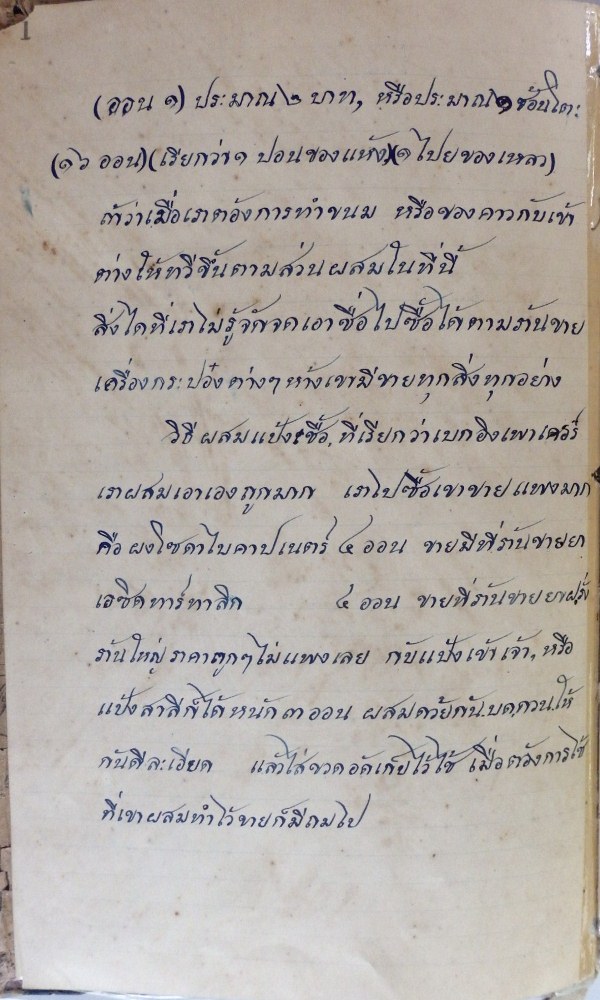 (ออน ๑) ประมาณ ๒ บาท, หรือประมาณ ๑ ช้อนโตะ
(๑๖ ออน) (เรียกว่า ๑ ปอนของแห้ง) (๑ ไปยของเหลว)
ถ้าว่าเมื่อเราต้องการทำขนม หรือของคาวกับเข้า
ต่างให้ทวีขึ้นตามส่วนผสมในที่นี้
สิ่งใดที่เราไม่รู้จักจดเอาชื่อไปซื้อได้ตามร้านขาย
เครื่องกระป๋องต่างๆ ห้างเขามีขายทุกสิ่งทุกอย่าง
วิธีผสมแป้งเชื้อ, ที่เรียกว่าเบกอิงเพาเดอร์
เราผสมเอาเองถูกมาก เราไปซื้อเขาขายแพงมาก
คือ ผงโซดาไบคาปเนตร์ ๔ ออน ขายมีที่ร้านขายยา
เอซิดทาร์ทาลิก ๔ ออน ขายที่ร้านขายยาฝรั่ง
ร้านใหญ่ ราคาถูกๆ ไม่แพงเลย กับแป้งเข้าเจ้า, หรือ
แป้งสาลีก็ได้หนัก ๓ ออน ผสมด้วยกัน บด กวน ให้
กันดีละเอียด แล้วใส่ขวดอัดเก็บไว้ใช้ เมื่อต้องการใช้
ที่เขาผสมทำไว้ขายก็มีถมไป